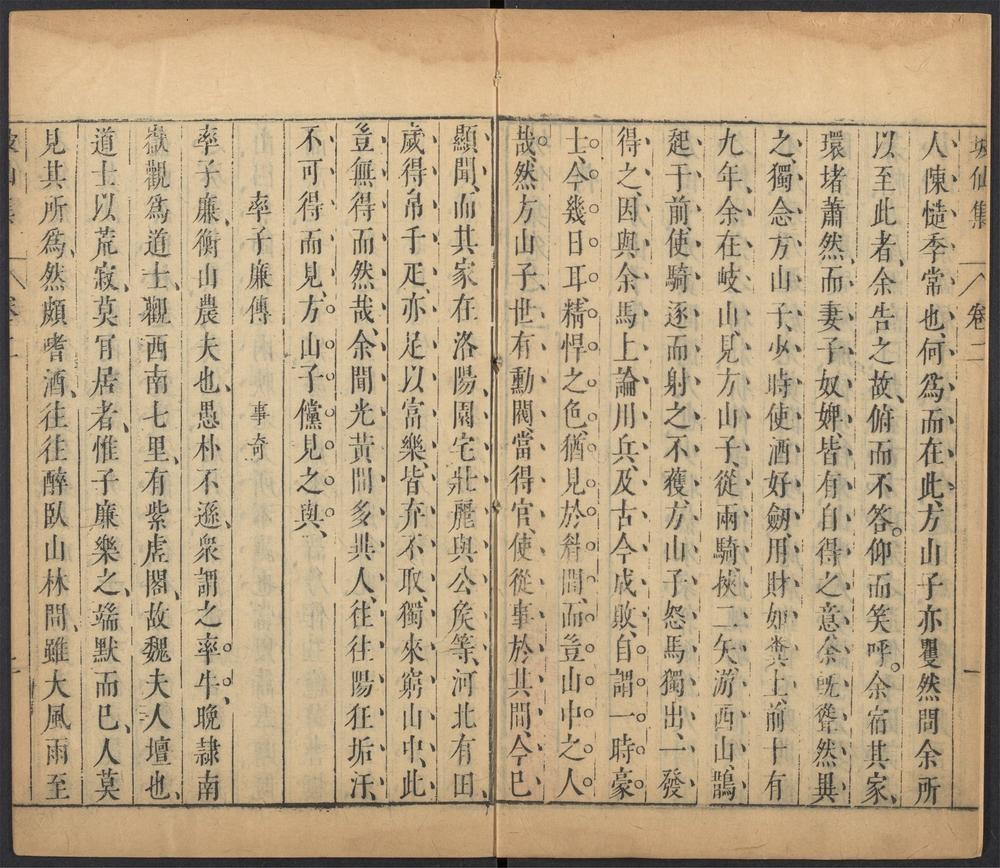 坡仙集 卷二 一
人陳慥季常也何爲而在此方山子亦矍然問余所
以至此者余告之故俯而不答仰而笑呼余宿其家
環堵蕭然而妻子奴婢皆有自得之意余既聳然異
之獨念方山子少時使酒好劒用財如糞土前十有
九年余在岐山見方山子從兩騎挾二矢游西山鵲
起于前使騎逐而射之不獲方山子怒馬獨出一發
得之因與余馬上論用兵及古今成敗自謂一時豪
士今幾日耳精悍之色猶見於眉間而豈山中之人
哉然方山子世有勳閥當得官使從事於其間今已
顯聞而其家在洛陽園宅壯麗與公矦等河北有田
歲得帛千疋亦足以富樂皆弃不取獨來窮山中此
豈無得而然哉余聞光黃間多異人往往陽狂垢汙
不可得而見方山子儻見之與
率子廉傳 事奇
率子廉衡山農夫也愚朴不遜衆謂之率牛晚隷南
嶽觀爲道士觀西南七里有紫虛閣故魏夫人壇也
道士以荒寂莫肎居者惟子廉樂之端默而已人莫
見其所爲然頗嗜酒往往醉臥山林間雖大風雨至